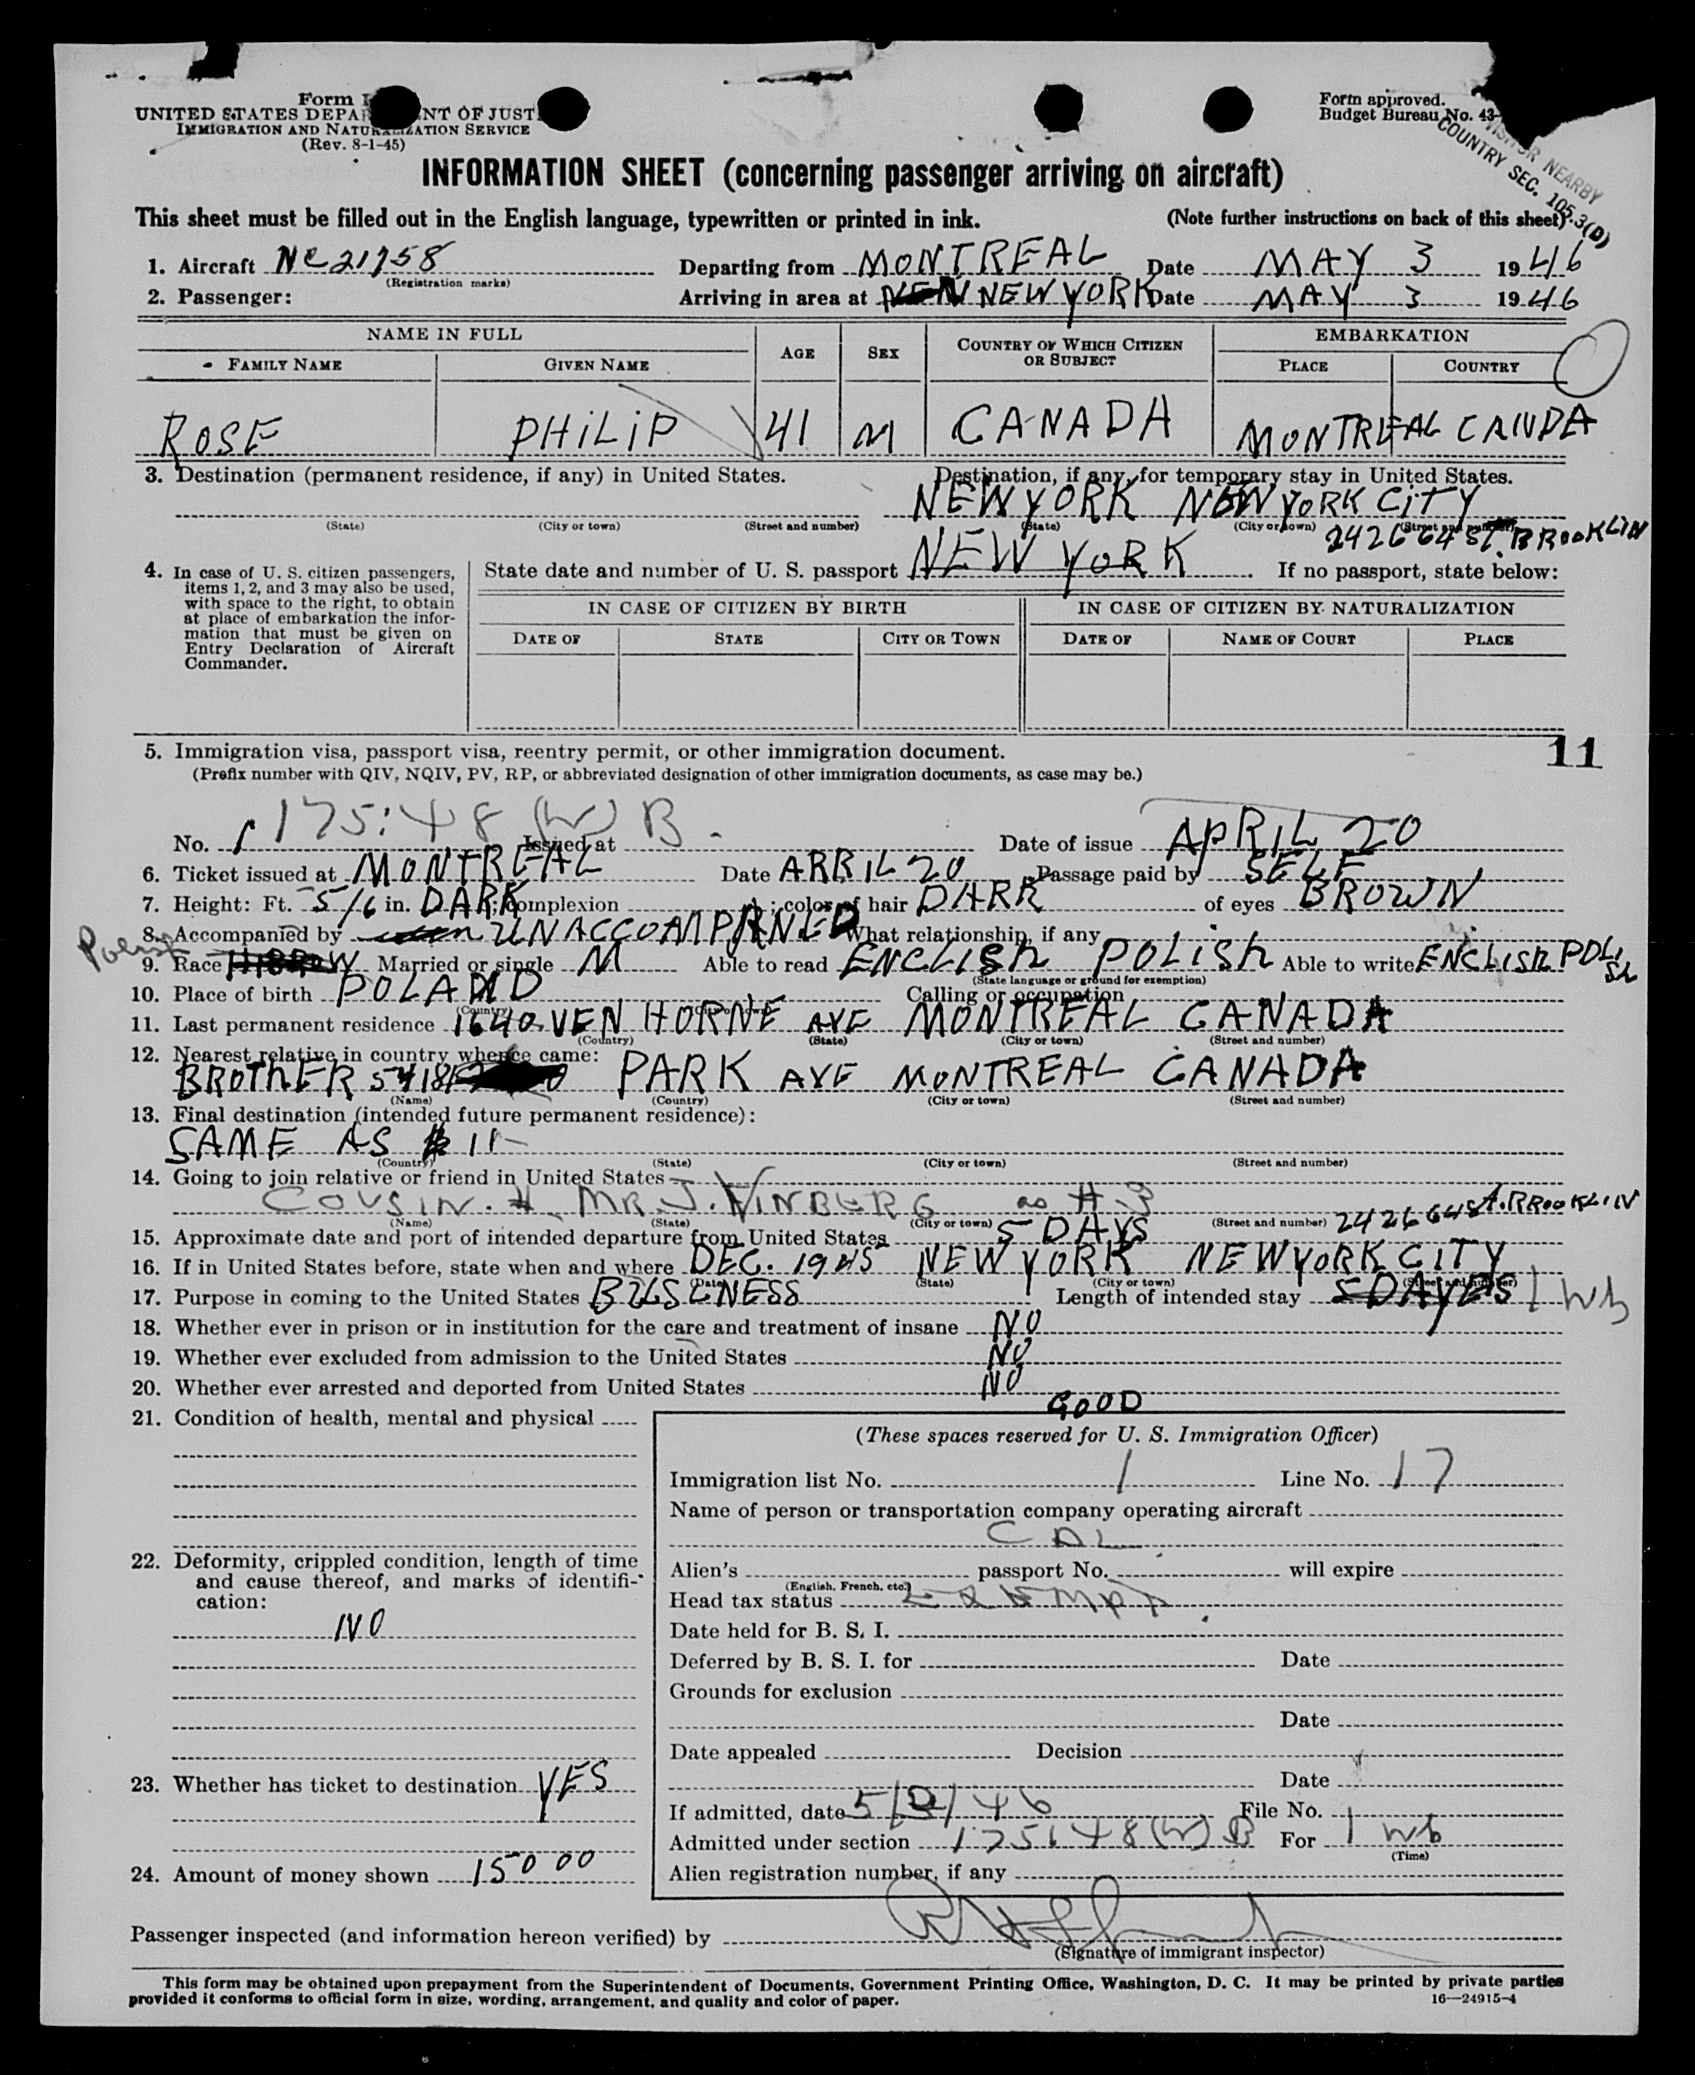 Form I
UNITED STATES DEPAR NT OF JUST
IMMIGRATION AND NATURALIZATION SERVICE
(Rev. 8-1-45)
Form approved.
Budget Bureau No. 43-
VISITOR NEARBY
COUNTRY SEC. 105.3(D)
INFORMATION SHEET (concerning passenger arriving on aircraft)
This sheet must be filled out in the English language, typewritten or printed in ink. (Note further instructions on back of this sheet)
1. Aircraft NC21758 Departing from MONTREAL Date MAY 3 1946
(Registration marks)
2. Passenger: Arriving in area at NEW YORK Date MAY 3 1946
NAME IN FULL AGE SEX COUNTRY OF WHICH CITIZEN OR SUBJECT EMBARKATION
FAMILY NAME GIVEN NAME PLACE COUNTRY
ROSE PHILIP 41 M CANADA MONTREAL CANDA
3. Destination (permanent residence, if any) in United States. Destination, if any, for temporary stay in United States.
NEW YORK NEW YORK CITY
(State) (City or town) (Street and number) (State) (City or town) (Street and number)
2426 64 ST. BROOKLIN
4. In case of U. S. citizen passengers, items 1, 2, and 3 may also be used, with space to the right, to obtain at place of embarkation the information that must be given on Entry Declaration of Aircraft Commander.
State date and number of U. S. passport NEW YORK. If no passport, state below:
IN CASE OF CITIZEN BY BIRTH IN CASE OF CITIZEN BY NATURALIZATION
DATE OF STATE CITY OR TOWN DATE OF NAME OF COURT PLACE
11
5. Immigration visa, passport visa, reentry permit, or other immigration document.
(Prefix number with QIV, NQIV, PV, RP, or abbreviated designation of other immigration documents, as case may be.)
No. 175:48 (W) B. Issued at Date of issue APRIL 20
6. Ticket issued at MONTREAL Date APRIL 20 Passage paid by SELF
7. Height: Ft. 5/6 in. DARK; complexion ; color of hair DARK of eyes BROWN
8. Accompanied by UNACCOMPANED What relationship, if any
Polish
9. Race HIBROW Married or single M Able to read ENGLISH POLISH Able to write ENGLISH POLISH
(State language or ground for exemption)
10. Place of birth POLAND Calling or occupation
(Country)
11. Last permanent residence 1640 VEN HORNE AVE MONTREAL CANADA
(Country) (State) (City or town) (Street and number)
12. Nearest relative in country whence came:
BROTHER 5418 PARK AVE MONTREAL CANADA
(Name) (Country) (City or town) (Street and number)
13. Final destination (intended future permanent residence):
SAME AS # 11-
(Country) (State) (City or town) (Street and number)
14. Going to join relative or friend in United States
COUSIN. MR. J. VINBURG as # 3
(Name) (State) (City or town) (Street and number) 2426 64 St. BROOKLIN
15. Approximate date and port of intended departure from United States 5 DAYS
16. If in United States before, state when and where DEC. 1945 NEW YORK NEW YORK CITY
(Date) (State) (City or town) (Street and number)
17. Purpose in coming to the United States BUSINESS Length of intended stay 5 DAYES 1 wk
18. Whether ever in prison or in institution for the care and treatment of insane NO
19. Whether ever excluded from admission to the United States NO
20. Whether ever arrested and deported from United States NO
21. Condition of health, mental and physical GOOD
(These spaces reserved for U. S. Immigration Officer)
Immigration list No. 1 Line No. 17
Name of person or transportation company operating aircraft
22. Deformity, crippled condition, length of time and cause thereof, and marks of identification:
NO
Alien's passport No. will expire
(English, French, etc.)
Head tax status Exempt
Date held for B. S. I.
Deferred by B. S. I. for Date
Grounds for exclusion
Date
Date appealed Decision
23. Whether has ticket to destination YES
Date
If admitted, date 5/3/46 File No.
Admitted under section 175:48(W)B For 1 wk
(Time)
24. Amount of money shown 150 00
Alien registration number, if any
Passenger inspected (and information hereon verified) by
(Signature of immigrant inspector)
This form may be obtained upon prepayment from the Superintendent of Documents, Government Printing Office, Washington, D. C. It may be printed by private parties
provided it conforms to official form in size, wording, arrangement, and quality and color of paper.
16—24915-4